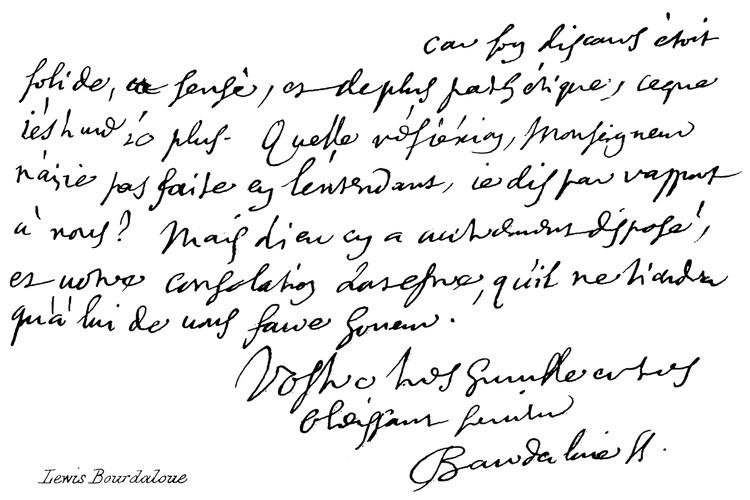 car son discours étoit
solide, et sensé, et de plus pathétique, ce que
plus. Quelle réflexion, Monseigneur
n'ai-ie pas faite en l'entendant, ie dis par rapport
à nous? Mais dieu en a autrement disposé,
et notre consolation qu'il ne tiendra
qu'à lui de nous faire
Vostre tres humble et tres
obéissant serviteur
Bourdaloue
Lewis Bourdaloue